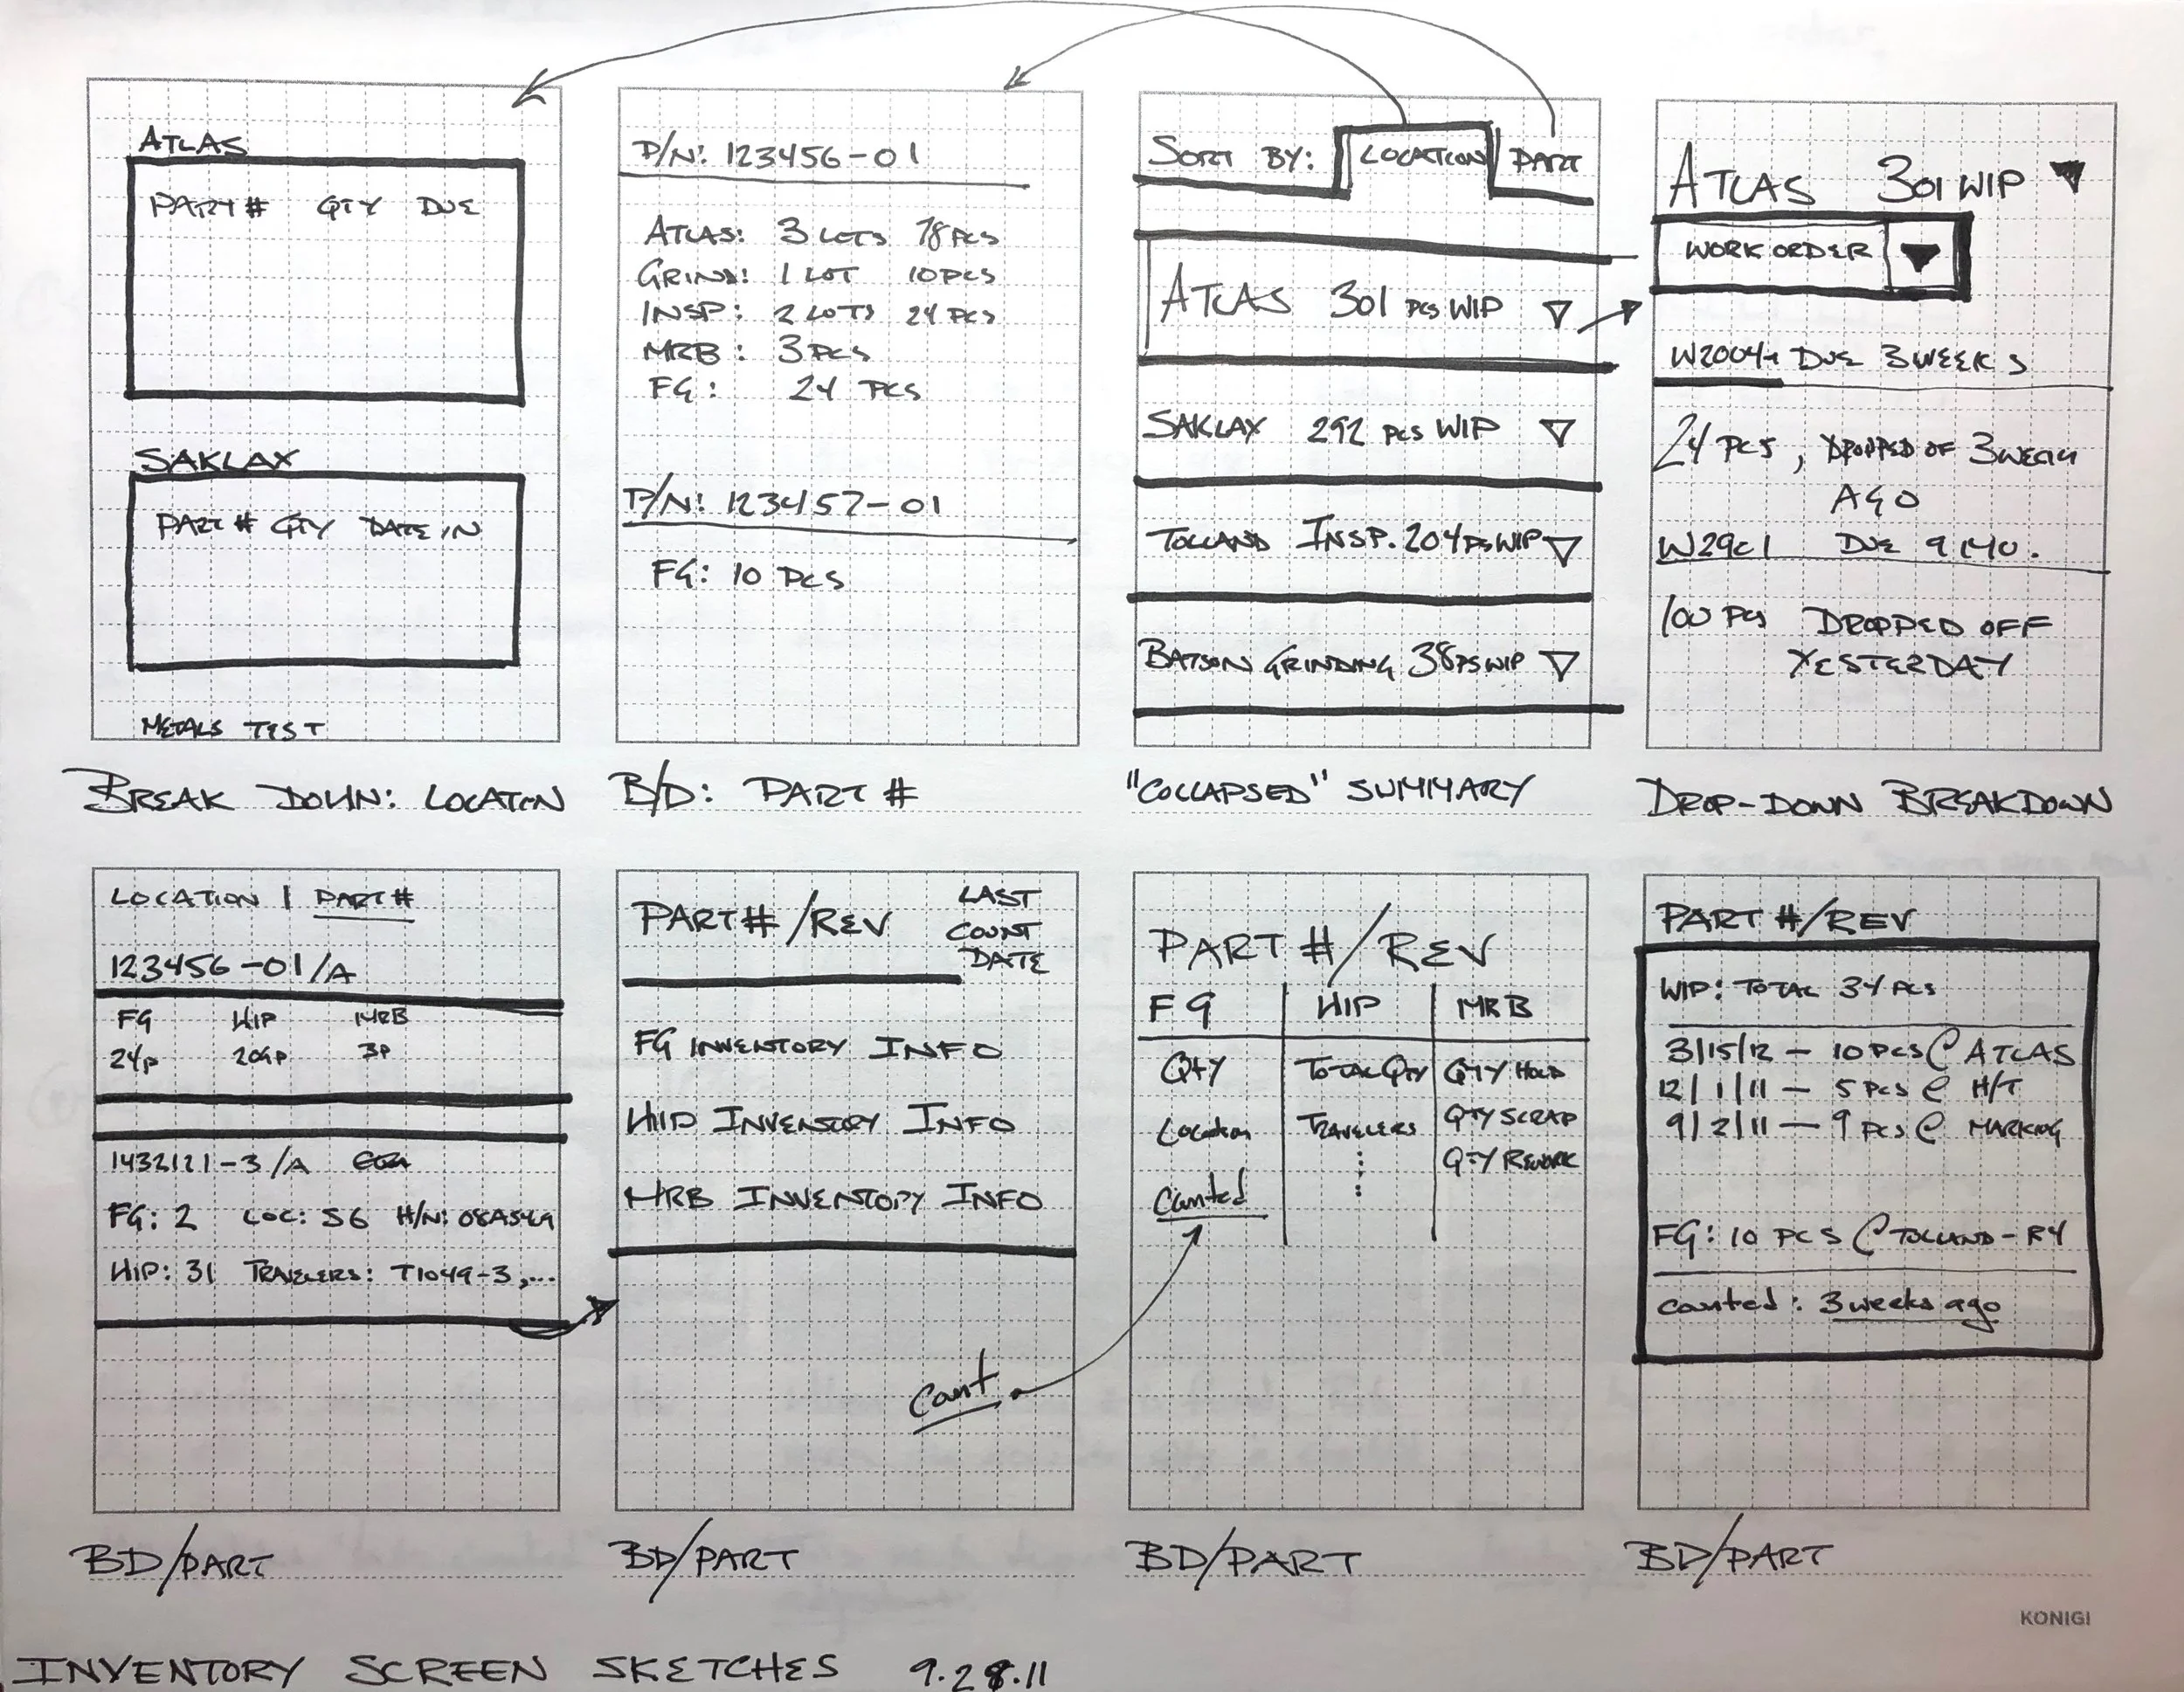 ATLAS
PART # QTY DUE
SAKLAX
PART # QTY DATE IN
METALS TEST
BREAK DOWN: LOCATON
P/N: 123456-01
ATLAS: 3 LOTS 78 PCS
GRIND: 1 LOT 10 PCS
INSP: 2 LOTS 24 PCS
MRB: 3 PCS
FG: 24 PCS
P/N: 123457-01
FG: 10 PCS
B/D: PART #
SORT BY: LOCATION PART
ATLAS 301 PCS WIP
SAKLAX 292 PCS WIP
TOLLAND INSP. 204 PS WIP
BATSON GRINDING 38 PS WIP
"COLLAPSED" SUMMARY
ATLAS 301 WIP
WORK ORDER
DUE 3 WEEKS
24 PCS, DROPPED OF 3 WEEKS
AGO
DUE 9 MO.
100 PCS DROPPED OFF
YESTERDAY
DROP-DOWN BREAKDOWN
LOCATION | PART #
123456-01/A
FG WIP MRB
24P 209P 3P
1432121-3/A
FG: 2 LOC: S6 H/N:
WIP: 31 TRAVELERS: T1049-3,...
BD/PART
PART #/REV
LAST
COUNT
DATE
FG INVENTORY INFO
WIP INVENTORY INFO
MRB INVENTORY INFO
Count
BD/PART
PART #/REV
FG WIP MRB
QTY TOTAL QTY QTY HOLD
Location TRAVELERS QTY SCRAP
QTY REWORK
Counted
BD/PART
PART #/REV
WIP: TOTAL 34 PCS
3/15/12 - 10 PCS @ ATLAS
12/1/11 - 5 PCS @ H/T
9/2/11 - 9 PCS @ MARKING
FG: 10 PCS @ TOLLAND - R4
counted: 3 weeks ago
BD/PART
KONIGI
INVENTORY SCREEN SKETCHES 9.28.11